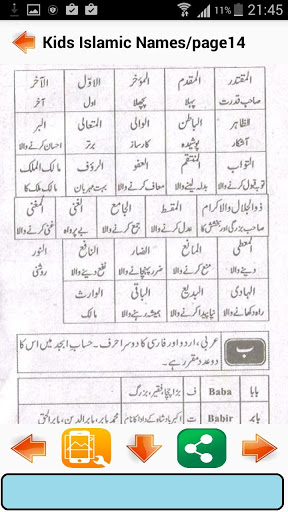 21:45
Kids Islamic Names/page14
المقتدر المقدم المؤخر الاوّل الآخر
صاحب قدرت پہلا پچھلا اول آخر
الظاہر الباطن الوالی المتعالی البر
آشکار پوشیدہ کارساز برتر احسان کرنے والا
التواب المنتقم العفو الرؤف مالک الملک
توبہ قبول کرنے والا بدلہ لینے والا معاف کرنے والا بہت مہربان مالک ملک کا
ذوالجلال والاکرام المقسط الجامع الغنی المغنی
صاحب بزرگی اور بخشش کا عدل کرنے والا جمع کرنے والا بے پرواہ غنی کرنے والا
المعطی المانع الضار النافع النور
دینے والا منع کرنے والا ضرر پہنچانے والا نفع دینے والا روشنی
الہادی البدیع الباقی الوارث
راہ دکھانے والا نیا پیدا کرنے والا ہمیشہ رہنے والا مالک
ب
عربی، اردو اور فارسی کا دوسرا حرف۔ حساب ابجد میں اس کا
دو عدد مقرر ہے۔
بابا Baba ف بڑا چچا، فقیر، بزرگ
بابر Babir ت اکبر بادشاہ کے دادا کا نام محمد بابر، بابر الدین، بابر الحق